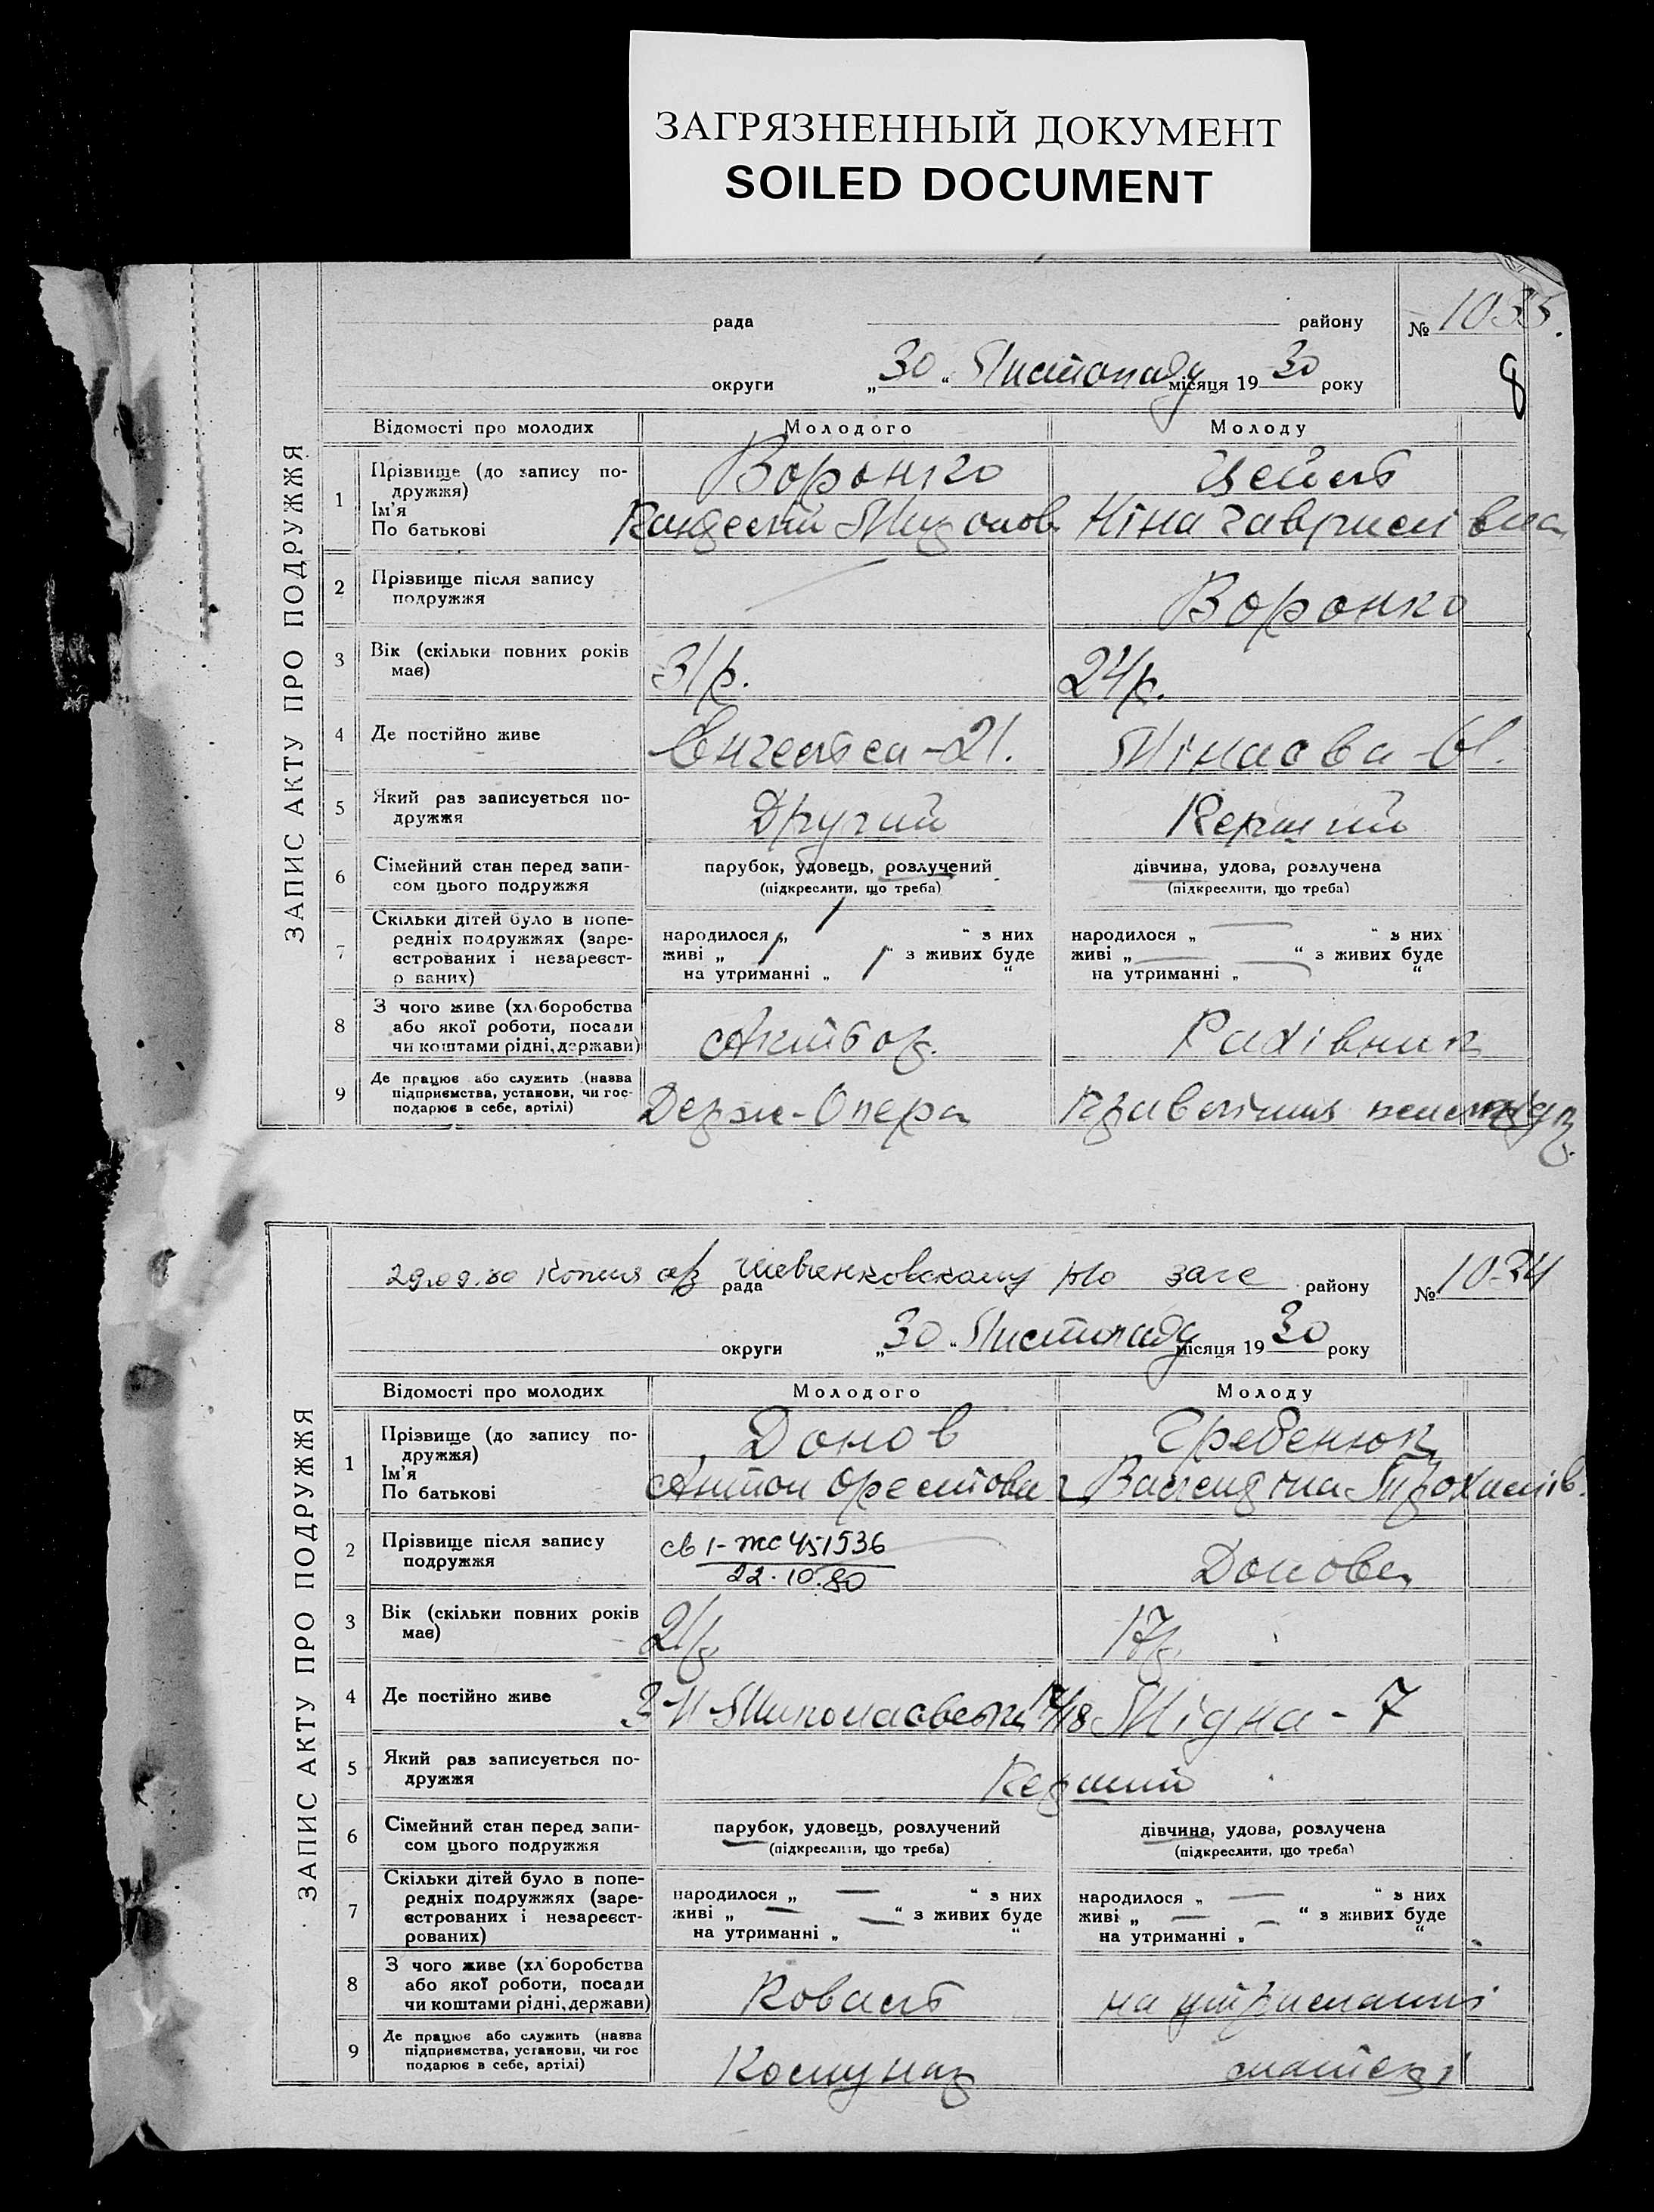 ЗАГРЯЗНЕННЫЙ ДОКУМЕНТ
SOILED DOCUMENT
ЗАПИС АКТУ ПРО ПОДРУЖЖЯ
рада району № 1035.
округи „30“ Листопаду місяця 1930 року
8
Відомості про молодих Молодого Молоду
1 Прізвище (до запису по-
дружжя)
Ім'я
По батькові
Воронко
Ніна Гаврилівна
2 Прізвище після запису
подружжя
Воронко
3 Вік (скільки повних років
має)
31 р. 24 р.
4 Де постійно живе
Енгельса-21.
5 Який раз записується по-
дружжя
Другий Перший
6 Сімейний стан перед запи-
сом цього подружжя
парубок, удовець, розлучений дівчина, удова, розлучена
(підкреслити, що треба) (підкреслити, що треба)
7 Скільки дітей було в попе-
редніх подружжях (заре-
єстрованих і незареєст-
р ваних)
народилося „ “ з них народилося „ “ з них
живі „ “ з живих буде живі „ “ з живих буде
на утриманні „ “ на утриманні „ “
8 З чого живе (хл боробства
або якої роботи, посади
чи коштами рідні, держави)
Актьор. Рахівник
9 Де працює або служить (назва
підприємства, установи, чи гос-
подарює в себе, артілі)
Держ-Опера Правління
ЗАПИС АКТУ ПРО ПОДРУЖЖЯ
29.09.80 копия шевченковскому р/о загс
рада району № 1034
округи „30“ Листопаду місяця 1930 року
Відомості про молодих Молодого Молоду
1 Прізвище (до запису по-
дружжя)
Ім'я
По батькові
Донов Гребенюк
Антон Орестович Валендина Трохимів.
2 Прізвище після запису
подружжя
св 1-жс 451536
22.10.80
Донова
3 Вік (скільки повних років
має)
21 р. 17 р.
4 Де постійно живе
Мідна - 7
5 Який раз записується по-
дружжя
Перший
6 Сімейний стан перед запи-
сом цього подружжя
парубок, удовець, розлучений дівчина, удова, розлучена
(підкреслити, що треба) (підкреслити, що треба)
7 Скільки дітей було в попе-
редніх подружжях (заре-
єстрованих і незареєст-
рованих)
народилося „ — “ з них народилося „ — “ з них
живі „ — — “ з живих буде живі „ — — “ з живих буде
на утриманні „ “ на утриманні „ “
8 З чого живе (хл боробства
або якої роботи, посади
чи коштами рідні, держави)
Коваль на утриманні
9 Де працює або служить (назва
підприємства, установи, чи гос
подарює в себе, артілі)
Комунар матері